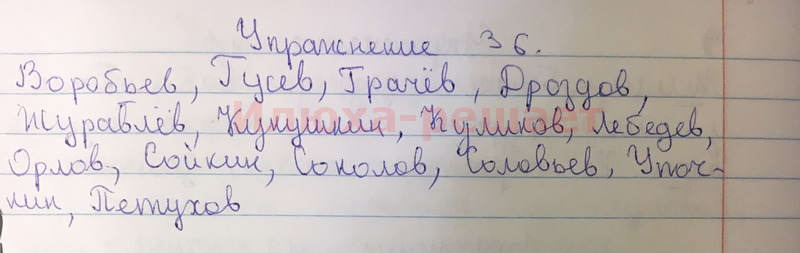 Упражнение 36.
Воробьев, Гусев, Грачёв, Дроздов,
Журавлёв, Кукушкин, Куликов, Лебедев,
Орлов, Сойкин, Соколов, Соловьев, Уточ-
кин, Петухов
Илюха-решает